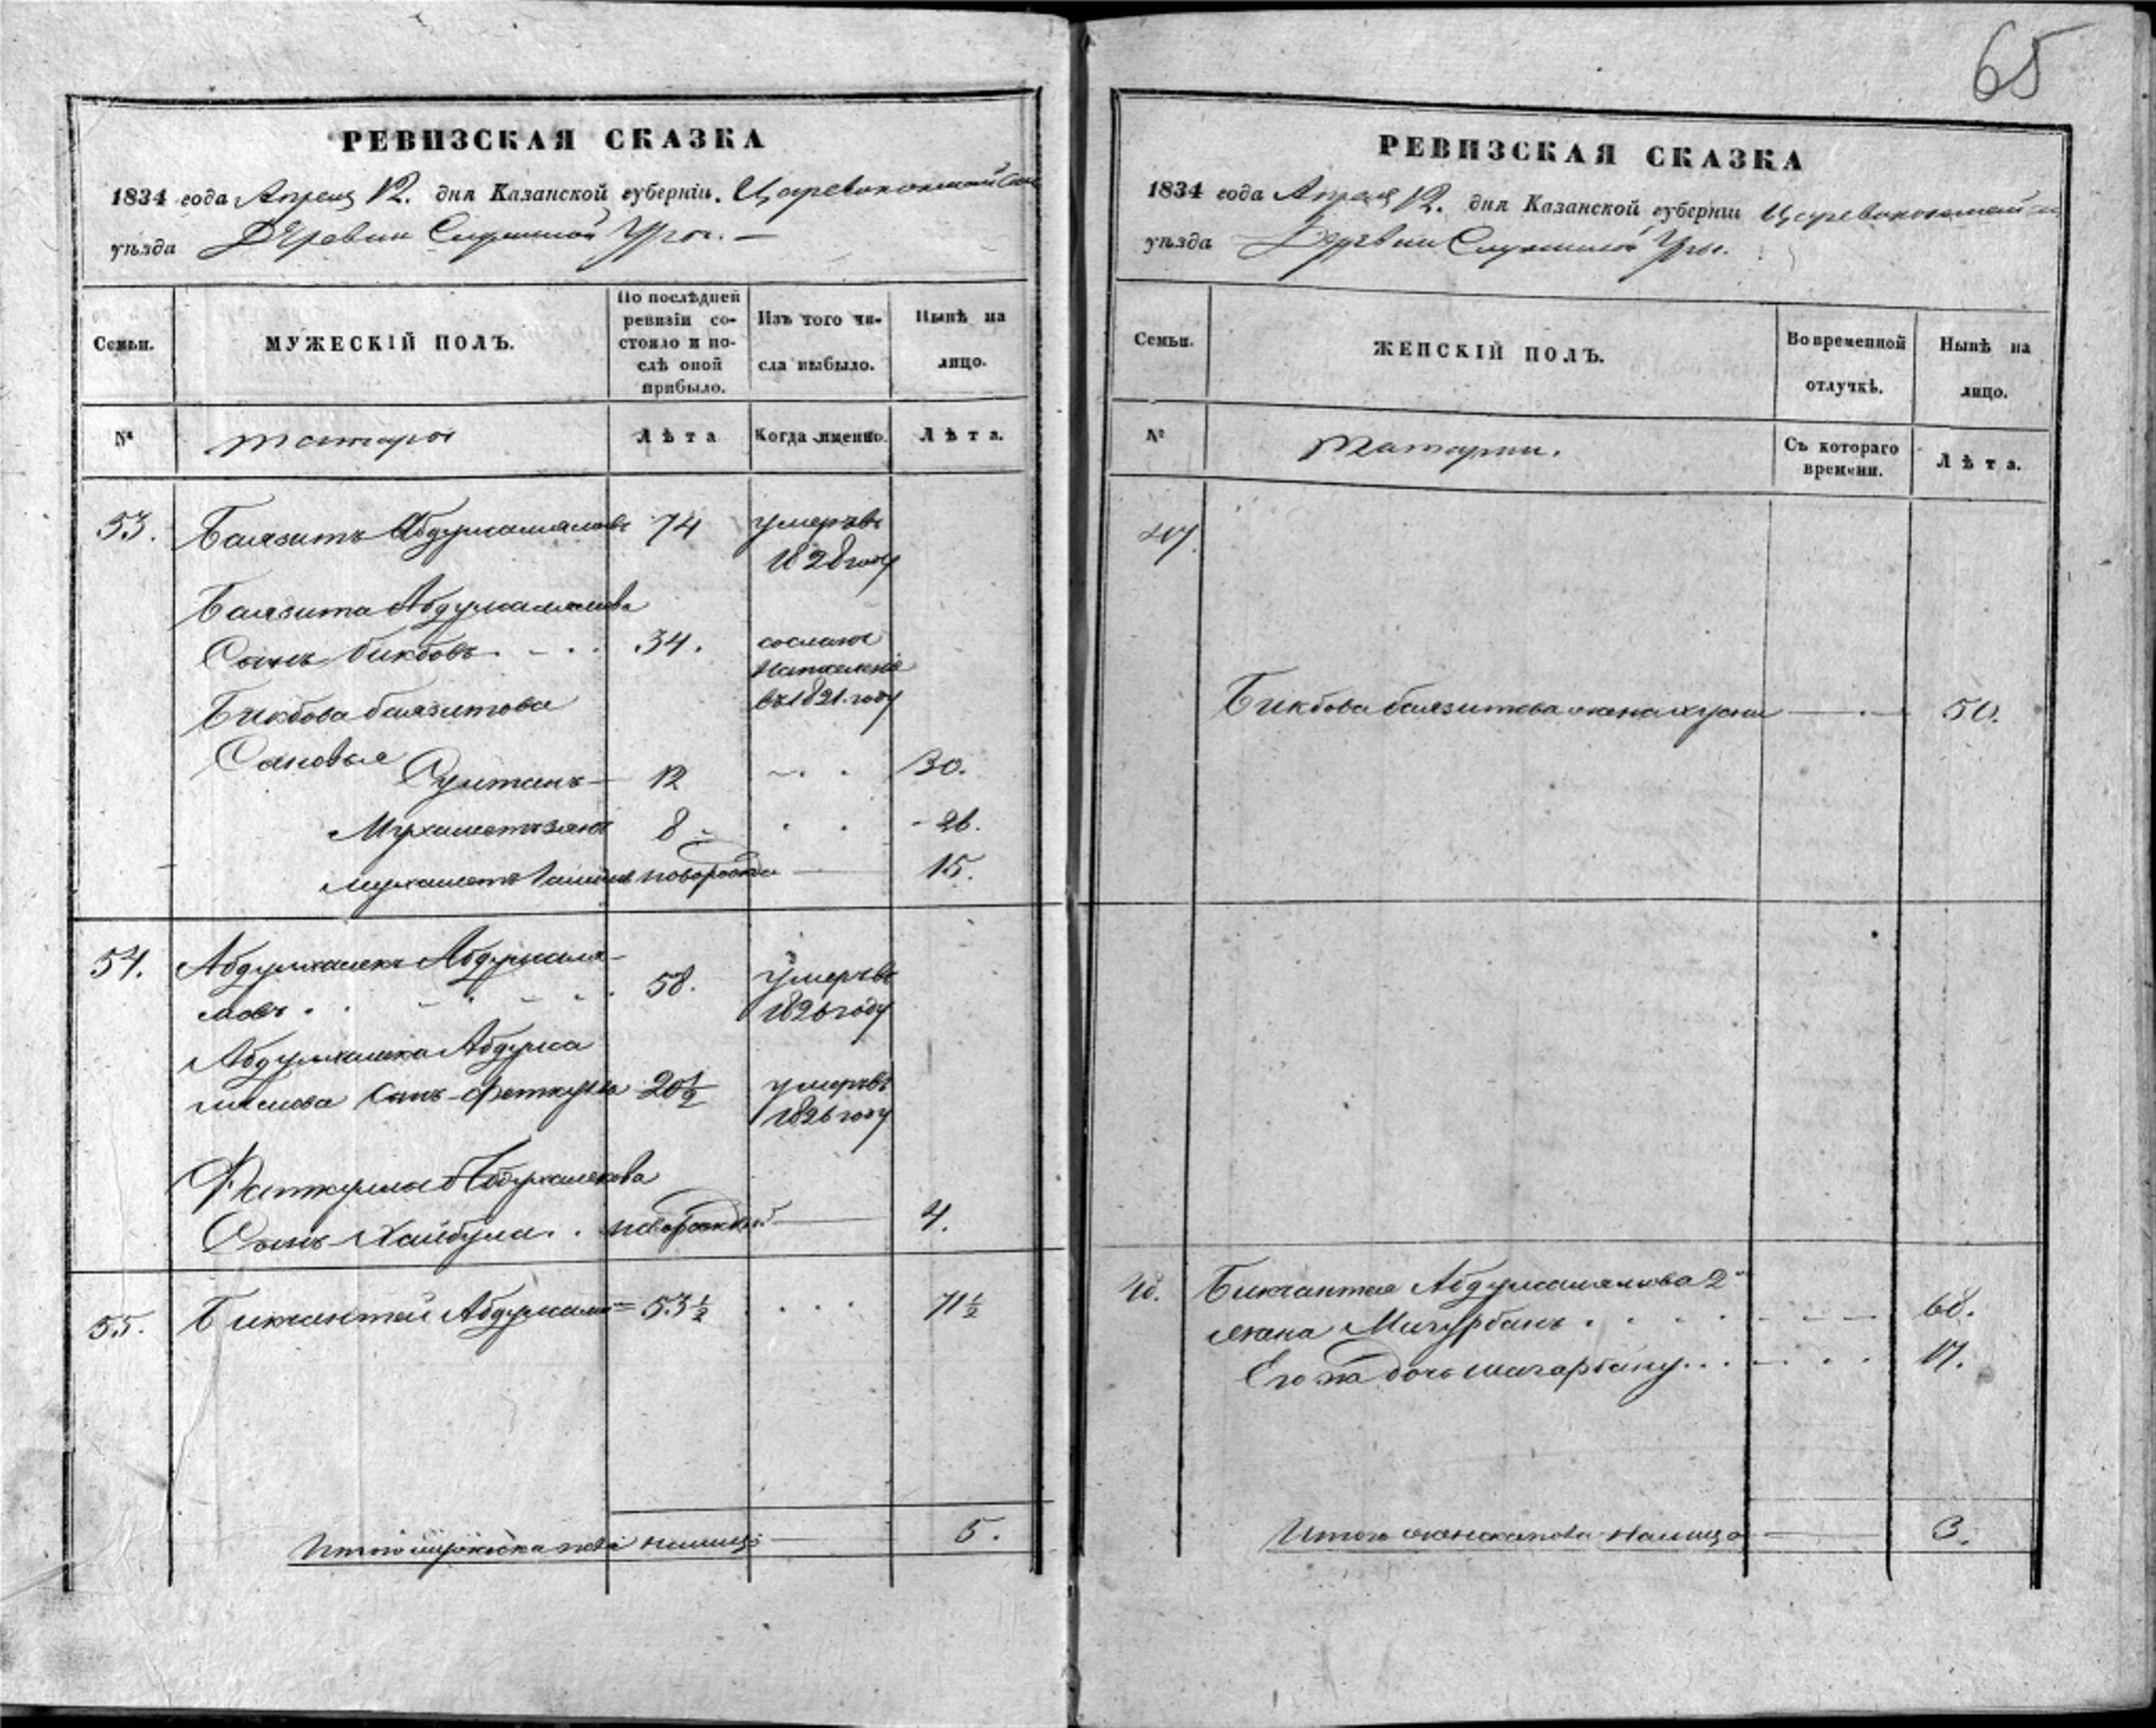 65
РЕВИЗСКАЯ СКАЗКА
1834 года Апреля 12. дня Казанской губернiи. Царевококшайской
уѣзда Деревни Служилой Уры. —
Семьи.
МУЖЕСКIЙ ПОЛЪ.
По послѣдней
ревизiи со-
стояло и по-
слѣ оной
прибыло.
Изъ того чи-
сла выбыло.
Нынѣ на
лицо.
№
татары
Лѣта
Когда именно.
Лѣта.
53. Баязитъ Абдулмаменовъ 74 умеръ въ
1828 году
Баязита
Сынъ Бикбовъ 34. сосланъ
на поселенiе
въ 1821. году
Бикбова Баязитова
Сыновья Султанъ 12 30.
Мухаметзянъ 8 26.
новорожден 15.
54. Абдулхалекъ
мовъ 58. умеръ въ
1826 году
Абдулхалека
Сынъ Феткулла 20½ умеръ въ
1826 году
Фаткуллы Абдулхалекова
Сынъ Хайбулла новорожден 4.
55. Бикчантай 53½ 71½
Итого мужеска пола налицо 5.
РЕВИЗСКАЯ СКАЗКА
1834 года Апреля 12. дня Казанской губернiи Царевококшайской
уѣзда Деревни Служилой Уры.
Семьи.
ЖЕНСКIЙ ПОЛЪ.
Во временной
отлучкѣ.
Нынѣ на
лицо.
№
татарки.
Съ котораго
времени.
Лѣта.
47.
Бикбова Баязитова жена 50.
48. Бикчантая 2я
жена 68.
Его же дочь 17.
Итого женска пола налицо 3.